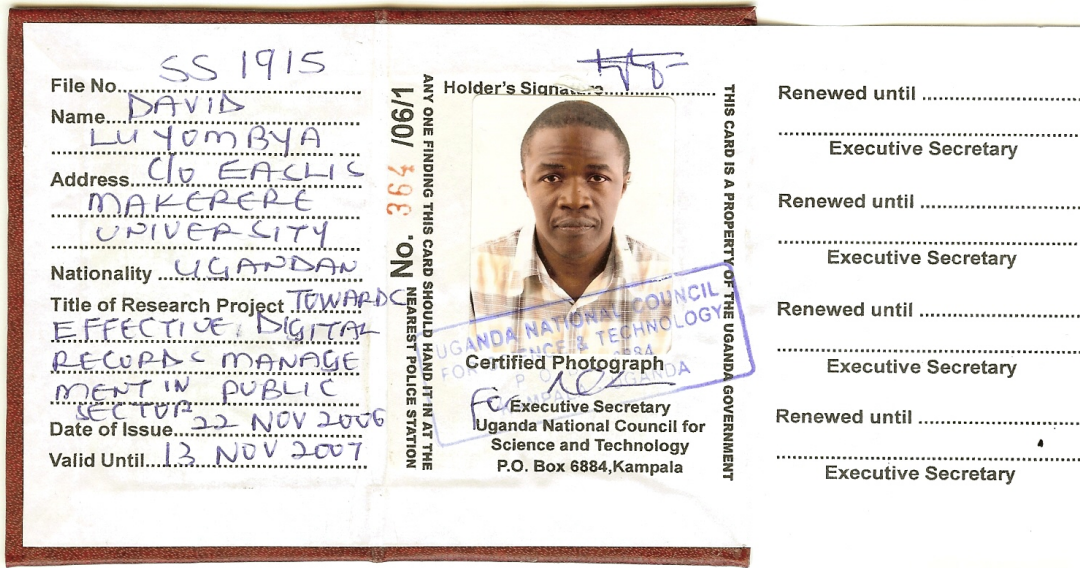 File No. SS 1915
Name. DAVID
LUYOMBYA
Address. C/O EACLIS
MAKERERE
UNIVERSITY
Nationality UGANDAN
Title of Research Project TOWARDS
EFFECTIVE, DIGITAL
RECORDS MANAGE
MENT IN PUBLIC
SECTOR
Date of Issue. 22 NOV 2006
Valid Until. 13 NOV 2007
No. 364 /06/1
ANY ONE FINDING THIS CARD SHOULD HAND IT IN AT THE
NEAREST POLICE STATION
Holder's Signature
UGANDA NATIONAL COUNCIL
FOR SCIENCE & TECHNOLOGY
P O 6884
KAMPALA UGANDA
Certified Photograph
For
Executive Secretary
Uganda National Council for
Science and Technology
P.O. Box 6884,Kampala
THIS CARD IS A PROPERTY OF THE UGANDA GOVERNMENT
Renewed until
Executive Secretary
Renewed until
Executive Secretary
Renewed until
Executive Secretary
Renewed until
Executive Secretary